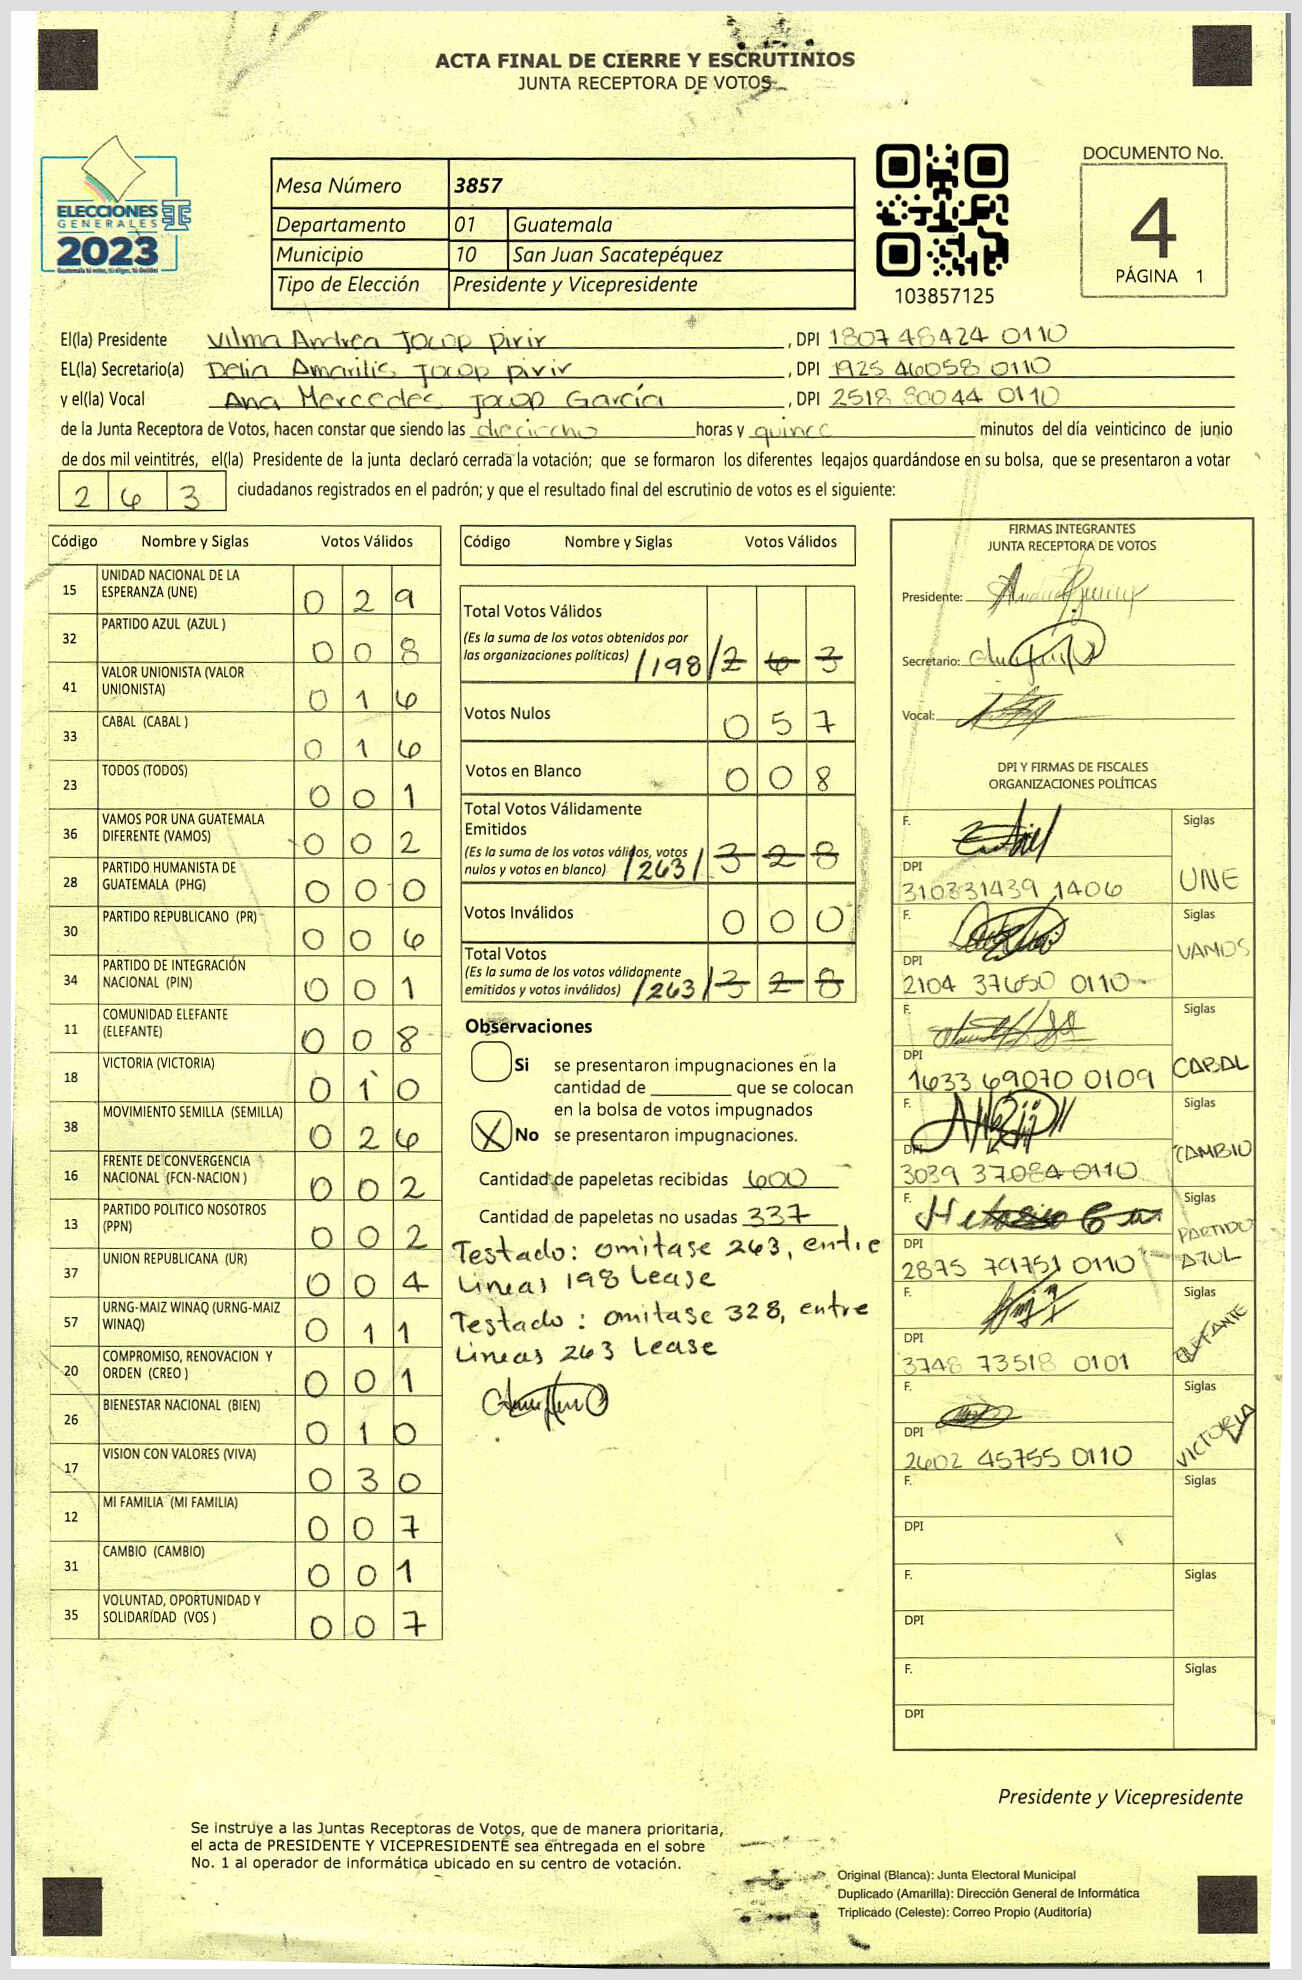 ACTA FINAL DE CIERRE Y ESCRUTINIOS
JUNTA RECEPTORA DE VOTOS
ELECCIONES
GENERALES
2023
Mesa Número 3857
Departamento 01 Guatemala
Municipio 10 San Juan Sacatepéquez
Tipo de Elección Presidente y Vicepresidente
103857125
DOCUMENTO No.
4
PÁGINA 1
El(la) Presidente Vilma Andrea Jocop Pirir, DPI 1807 48424 0110
EL(la) Secretario(a) Delia Amarilis Jocop Pirir, DPI 1925 46058 0110
y el(la) Vocal Ana Mercedes Jocop García, DPI 2518 80044 0110
de la Junta Receptora de Votos, hacen constar que siendo las dieciocho horas y quince minutos del día veinticinco de junio
de dos mil veintitrés, el(la) Presidente de la junta declaró cerrada la votación; que se formaron los diferentes legajos guardándose en su bolsa, que se presentaron a votar
2 6 3 ciudadanos registrados en el padrón; y que el resultado final del escrutinio de votos es el siguiente:
Código Nombre y Siglas Votos Válidos
15 UNIDAD NACIONAL DE LA
ESPERANZA (UNE) 0 2 9
32 PARTIDO AZUL (AZUL ) 0 0 8
41 VALOR UNIONISTA (VALOR
UNIONISTA) 0 1 6
33 CABAL (CABAL ) 0 1 6
23 TODOS (TODOS) 0 0 1
36 VAMOS POR UNA GUATEMALA
DIFERENTE (VAMOS) 0 0 2
28 PARTIDO HUMANISTA DE
GUATEMALA (PHG) 0 0 0
30 PARTIDO REPUBLICANO (PR) 0 0 6
34 PARTIDO DE INTEGRACIÓN
NACIONAL (PIN) 0 0 1
11 COMUNIDAD ELEFANTE
(ELEFANTE) 0 0 8
18 VICTORIA (VICTORIA) 0 1 0
38 MOVIMIENTO SEMILLA (SEMILLA) 0 2 6
16 FRENTE DE CONVERGENCIA
NACIONAL (FCN-NACION ) 0 0 2
13 PARTIDO POLITICO NOSOTROS
(PPN) 0 0 2
37 UNION REPUBLICANA (UR) 0 0 4
57 URNG-MAIZ WINAQ (URNG-MAIZ
WINAQ) 0 1 1
20 COMPROMISO, RENOVACION Y
ORDEN (CREO ) 0 0 1
26 BIENESTAR NACIONAL (BIEN) 0 1 0
17 VISION CON VALORES (VIVA) 0 3 0
12 MI FAMILIA (MI FAMILIA) 0 0 7
31 CAMBIO (CAMBIO) 0 0 1
35 VOLUNTAD, OPORTUNIDAD Y
SOLIDARIDAD (VOS ) 0 0 7
Código Nombre y Siglas Votos Válidos
Total Votos Válidos
(Es la suma de los votos obtenidos por
las organizaciones políticas) /198/ 2 6 3
Votos Nulos 0 5 7
Votos en Blanco 0 0 8
Total Votos Válidamente
Emitidos
(Es la suma de los votos válidos, votos
nulos y votos en blanco) /263/ 3 2 8
Votos Inválidos 0 0 0
Total Votos
(Es la suma de los votos válidamente
emitidos y votos inválidos) /263/ 3 2 8
Observaciones
Si se presentaron impugnaciones en la
cantidad de ________ que se colocan
en la bolsa de votos impugnados
X No se presentaron impugnaciones.
Cantidad de papeletas recibidas 600
Cantidad de papeletas no usadas 337
Testado: omitase 263, entre
Lineas 198 Lease
Testado: omitase 328, entre
Lineas 263 Lease
FIRMAS INTEGRANTES
JUNTA RECEPTORA DE VOTOS
Presidente:
Secretario:
Vocal:
DPI Y FIRMAS DE FISCALES
ORGANIZACIONES POLÍTICAS
F. Siglas
DPI UNE
310331439 1406
F. Siglas
DPI VAMOS
2104 37650 0110
F. Siglas
DPI CABAL
1633 69070 0109
F. Siglas
DPI CAMBIO
3039 37084 0110
F. Siglas
DPI PARTIDO AZUL
2875 79751 0110
F. Siglas
DPI ELEFANTE
3748 73518 0101
F. Siglas
DPI VICTORIA
2602 45755 0110
F. Siglas
DPI
F. Siglas
DPI
F. Siglas
DPI
Presidente y Vicepresidente
Se instruye a las Juntas Receptoras de Votos, que de manera prioritaria,
el acta de PRESIDENTE Y VICEPRESIDENTE sea entregada en el sobre
No. 1 al operador de informática ubicado en su centro de votación.
Original (Blanca): Junta Electoral Municipal
Duplicado (Amarilla): Dirección General de Informática
Triplicado (Celeste): Correo Propio (Auditoría)